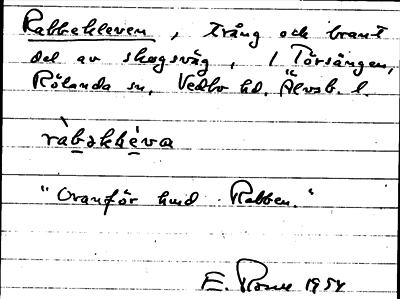 Rabbekleven, trång och brant
del av skogsväg, i Törsängen,
Rölanda sn, Vedbo hd. Älvsb. l.
ràbəkléva
"Ovanför hmd Rabben."
E. 1954